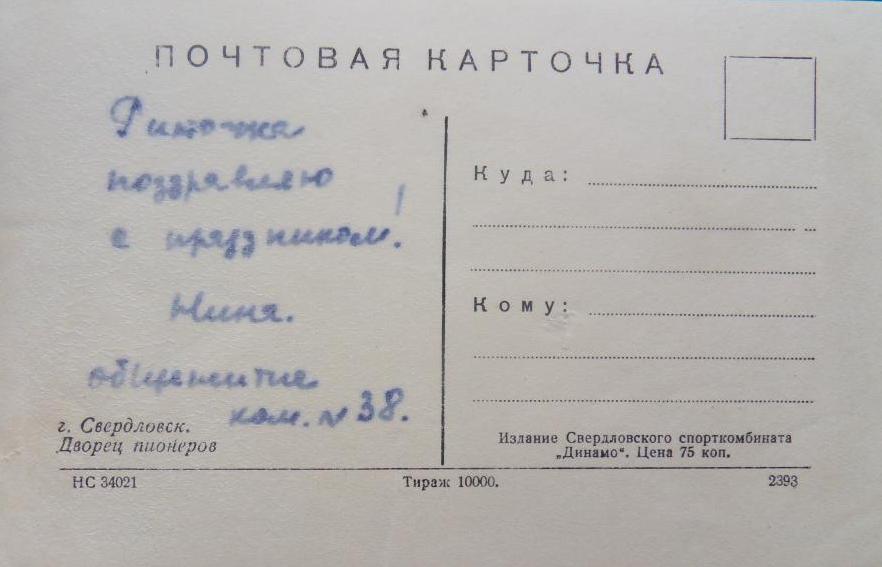 ПОЧТОВАЯ КАРТОЧКА
Риточка
поздравляю
с праздником!
Нина.
общежитие
ком. № 38.
г. Свердловск.
Дворец пионеров
Куда:
Кому:
Издание Свердловского спорткомбината
„Динамо“. Цена 75 коп.
НС 34021
Тираж 10000.
2393